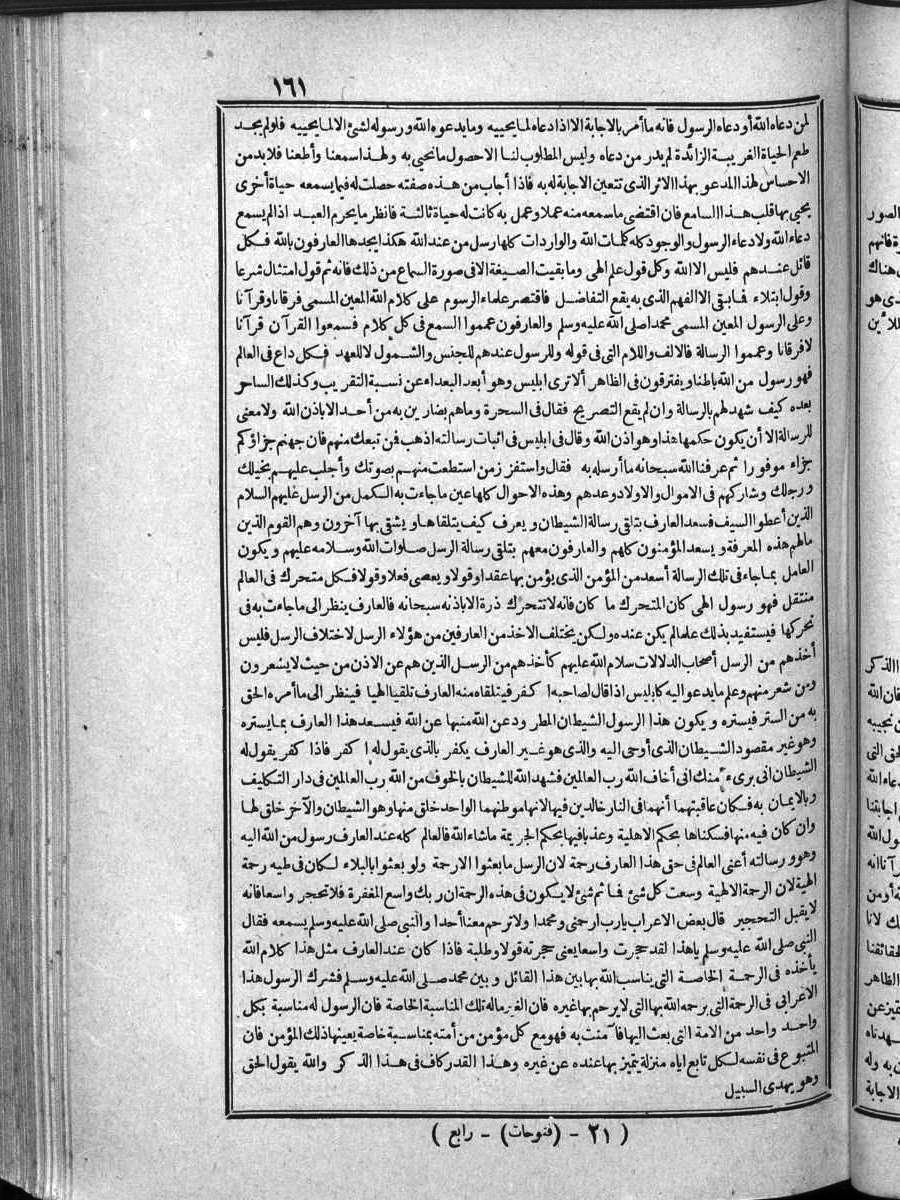 ١٦١
لمن دعاه الله أو دعاه الرسول فانه ما أمر بالاجابة الا اذا دعاه لما يحييه وما يدعوه الله ورسوله لشئ الا لما يحييه فلو لم يجد
طعم الحياة الغريبة الزائدة لم يدر من دعاه وليس المطلوب لنا الا حصول ما نحيى به ولهذا سمعنا وأطعنا فلا بد من
الاحساس لهذا المدعو بهذا الاثر الذى تتعين الاجابة له به فاذا أجاب من هذه صفته حصلت له فيما يسمعه حياة أخرى
يحيى بها قلب هذا السامع فان اقتضى ما سمعه منه عملا وعمل به كانت له حياة ثالثة فانظر ما يحرم العبد اذا لم يسمع
دعاء الله ولا دعاء الرسول والوجود كله كلمات الله والواردات كلها رسل من عند الله هكذا يجدها العارفون بالله فكل
قائل عندهم فليس الا الله وكل قول علم الهى وما بقيت الصيغة الا فى صورة السماع من ذلك فانه ثم قول امتثال شرعا
وقول ابتلاء فما بقى الا الفهم الذى به يقع التفاضل فاقتصر علماء الرسوم على كلام الله المعين المسمى فرقانا وقرآنا
وعلى الرسول المعين المسمى محمدا صلى الله عليه وسلم والعارفون عمموا السمع فى كل كلام فسمعوا القرآن قرآنا
لا فرقانا وعمموا الرسالة فالالف واللام التى فى قوله وللرسول عندهم للجنس والشمول لا للعهد فكل داع فى العالم
فهو رسول من الله باطنا ويفترقون فى الظاهر ألا ترى ابليس وهو أبعد البعداء عن نسبة التقريب وكذلك الساحر
بعده كيف شهد لهم بالرسالة وان لم يقع التصريح فقال فى السحرة وما هم بضارين به من أحد الا باذن الله ولا معنى
للرسالة الا أن يكون حكمها هذا وهو اذن الله وقال فى ابليس فى اثبات رسالته اذهب فمن تبعك منهم فان جهنم جزاؤكم
جزاء موفورا ثم عرفنا الله سبحانه ما أرسله به فقال واستفزز من استطعت منهم بصوتك وأجلب عليهم بخيلك
ورجلك وشاركهم فى الاموال والاولاد وعدهم وهذه الاحوال كلها عين ما جاءت به الكمل من الرسل عليهم السلام
الذين أعطوا السيف فسعد العارف بتلقى رسالة الشيطان ويعرف كيف يتلقاها ويشقى بها آخرون وهم القوم الذين
ما لهم هذه المعرفة ويسعد المؤمنون كلهم والعارفون معهم بتلقى رسالة الرسل صلوات الله وسلامه عليهم ويكون
العامل بما جاء فى تلك الرسالة أسعد من المؤمن الذى يؤمن بها عقدا وقولا ويعصى فعلا وقولا فكل متحرك فى العالم
منتقل فهو رسول الهى كان المتحرك ما كان فانه لا تتحرك ذرة الا باذنه سبحانه فالعارف ينظر الى ما جاءت به فى
تحركها فيستفيد بذلك علما لم يكن عنده ولكن يختلف الاخذ من العارفين من هؤلاء الرسل لاختلاف الرسل فليس
أخذهم من الرسل أصحاب الدلالات سلام الله عليهم كأخذهم من الرسل الذين هم عن الاذن من حيث لا يشعرون
ومن شعر منهم وعلم ما يدعو اليه كابليس اذا قال لصاحبه اكفر فيتلقاه منه العارف تلقيا الهيا فينظر الى ما أمره الحق
به من الستر فيستره ويكون هذا الرسول الشيطان المطرود عن الله منبها عن الله فيسعد هذا العارف بما يستره
وهو غير مقصود الشيطان الذى أوحى اليه والذى هو غير العارف يكفر بالذى يقول له اكفر فاذا كفر يقول له
الشيطان انى برىء منك انى أخاف الله رب العالمين فشهد الله للشيطان بالخوف من الله رب العالمين فى دار التكليف
وبالايمان به فكان عاقبتهما أنهما فى النار خالدين فيها لانها موطنهما الواحد خلق منها وهو الشيطان والآخر خلق لها
وان كان فيه منها فسكناها بحكم الاهلية وعذبا فيها بحكم الجريمة ما شاء الله فالعالم كله عند العارف رسول من الله اليه
وهو ورسالته أعنى العالم فى حق هذا العارف رحمة لان الرسل ما بعثوا الا رحمة ولو بعثوا بالبلاء لكان فى طيه رحمة
الهية لان الرحمة الالهية وسعت كل شئ فما ثم شئ لا يكون فى هذه الرحمة ان ربك واسع المغفرة فلا تحجر واسعا فانه
لا يقبل التحجير قال بعض الاعراب يا رب ارحمنى ومحمدا ولا ترحم معنا أحدا والنبى صلى الله عليه وسلم يسمعه فقال
النبى صلى الله عليه وسلم يا هذا لقد حجرت واسعا يعنى حجرته قولا وطلبة فاذا كان عند العارف مثل هذا كلام الله
يأخذه فى الرحمة الخاصة التى يناسب الله بها بين هذا القائل وبين محمد صلى الله عليه وسلم فشرك الرسول هذا
الاعرابى فى الرحمة التى يرحمه الله بها التى لا يرحم بها غيره فان الغير ما له تلك المناسبة الخاصة فان الرسول له مناسبة بكل
واحد واحد من الامة التى بعث اليها فآمنت به فهو مع كل مؤمن من أمته بمناسبة خاصة يعينها ذلك المؤمن فان
المتبوع فى نفسه لكل تابع اياه منزلة يتميز بها عنده عن غيره وهذا القدر كاف فى هذا الذكر والله يقول الحق
وهو يهدى السبيل
( ٢١ - (فتوحات) - رابع )
الصور
ة فانهم
هناك
ذى هو
الذكر
فان الله
نجيبه
لحق التى
دعاء الله
اجابتنا
ول الله
ك لانا
لحقائقنا
الظاهر
به وله
الاجابة